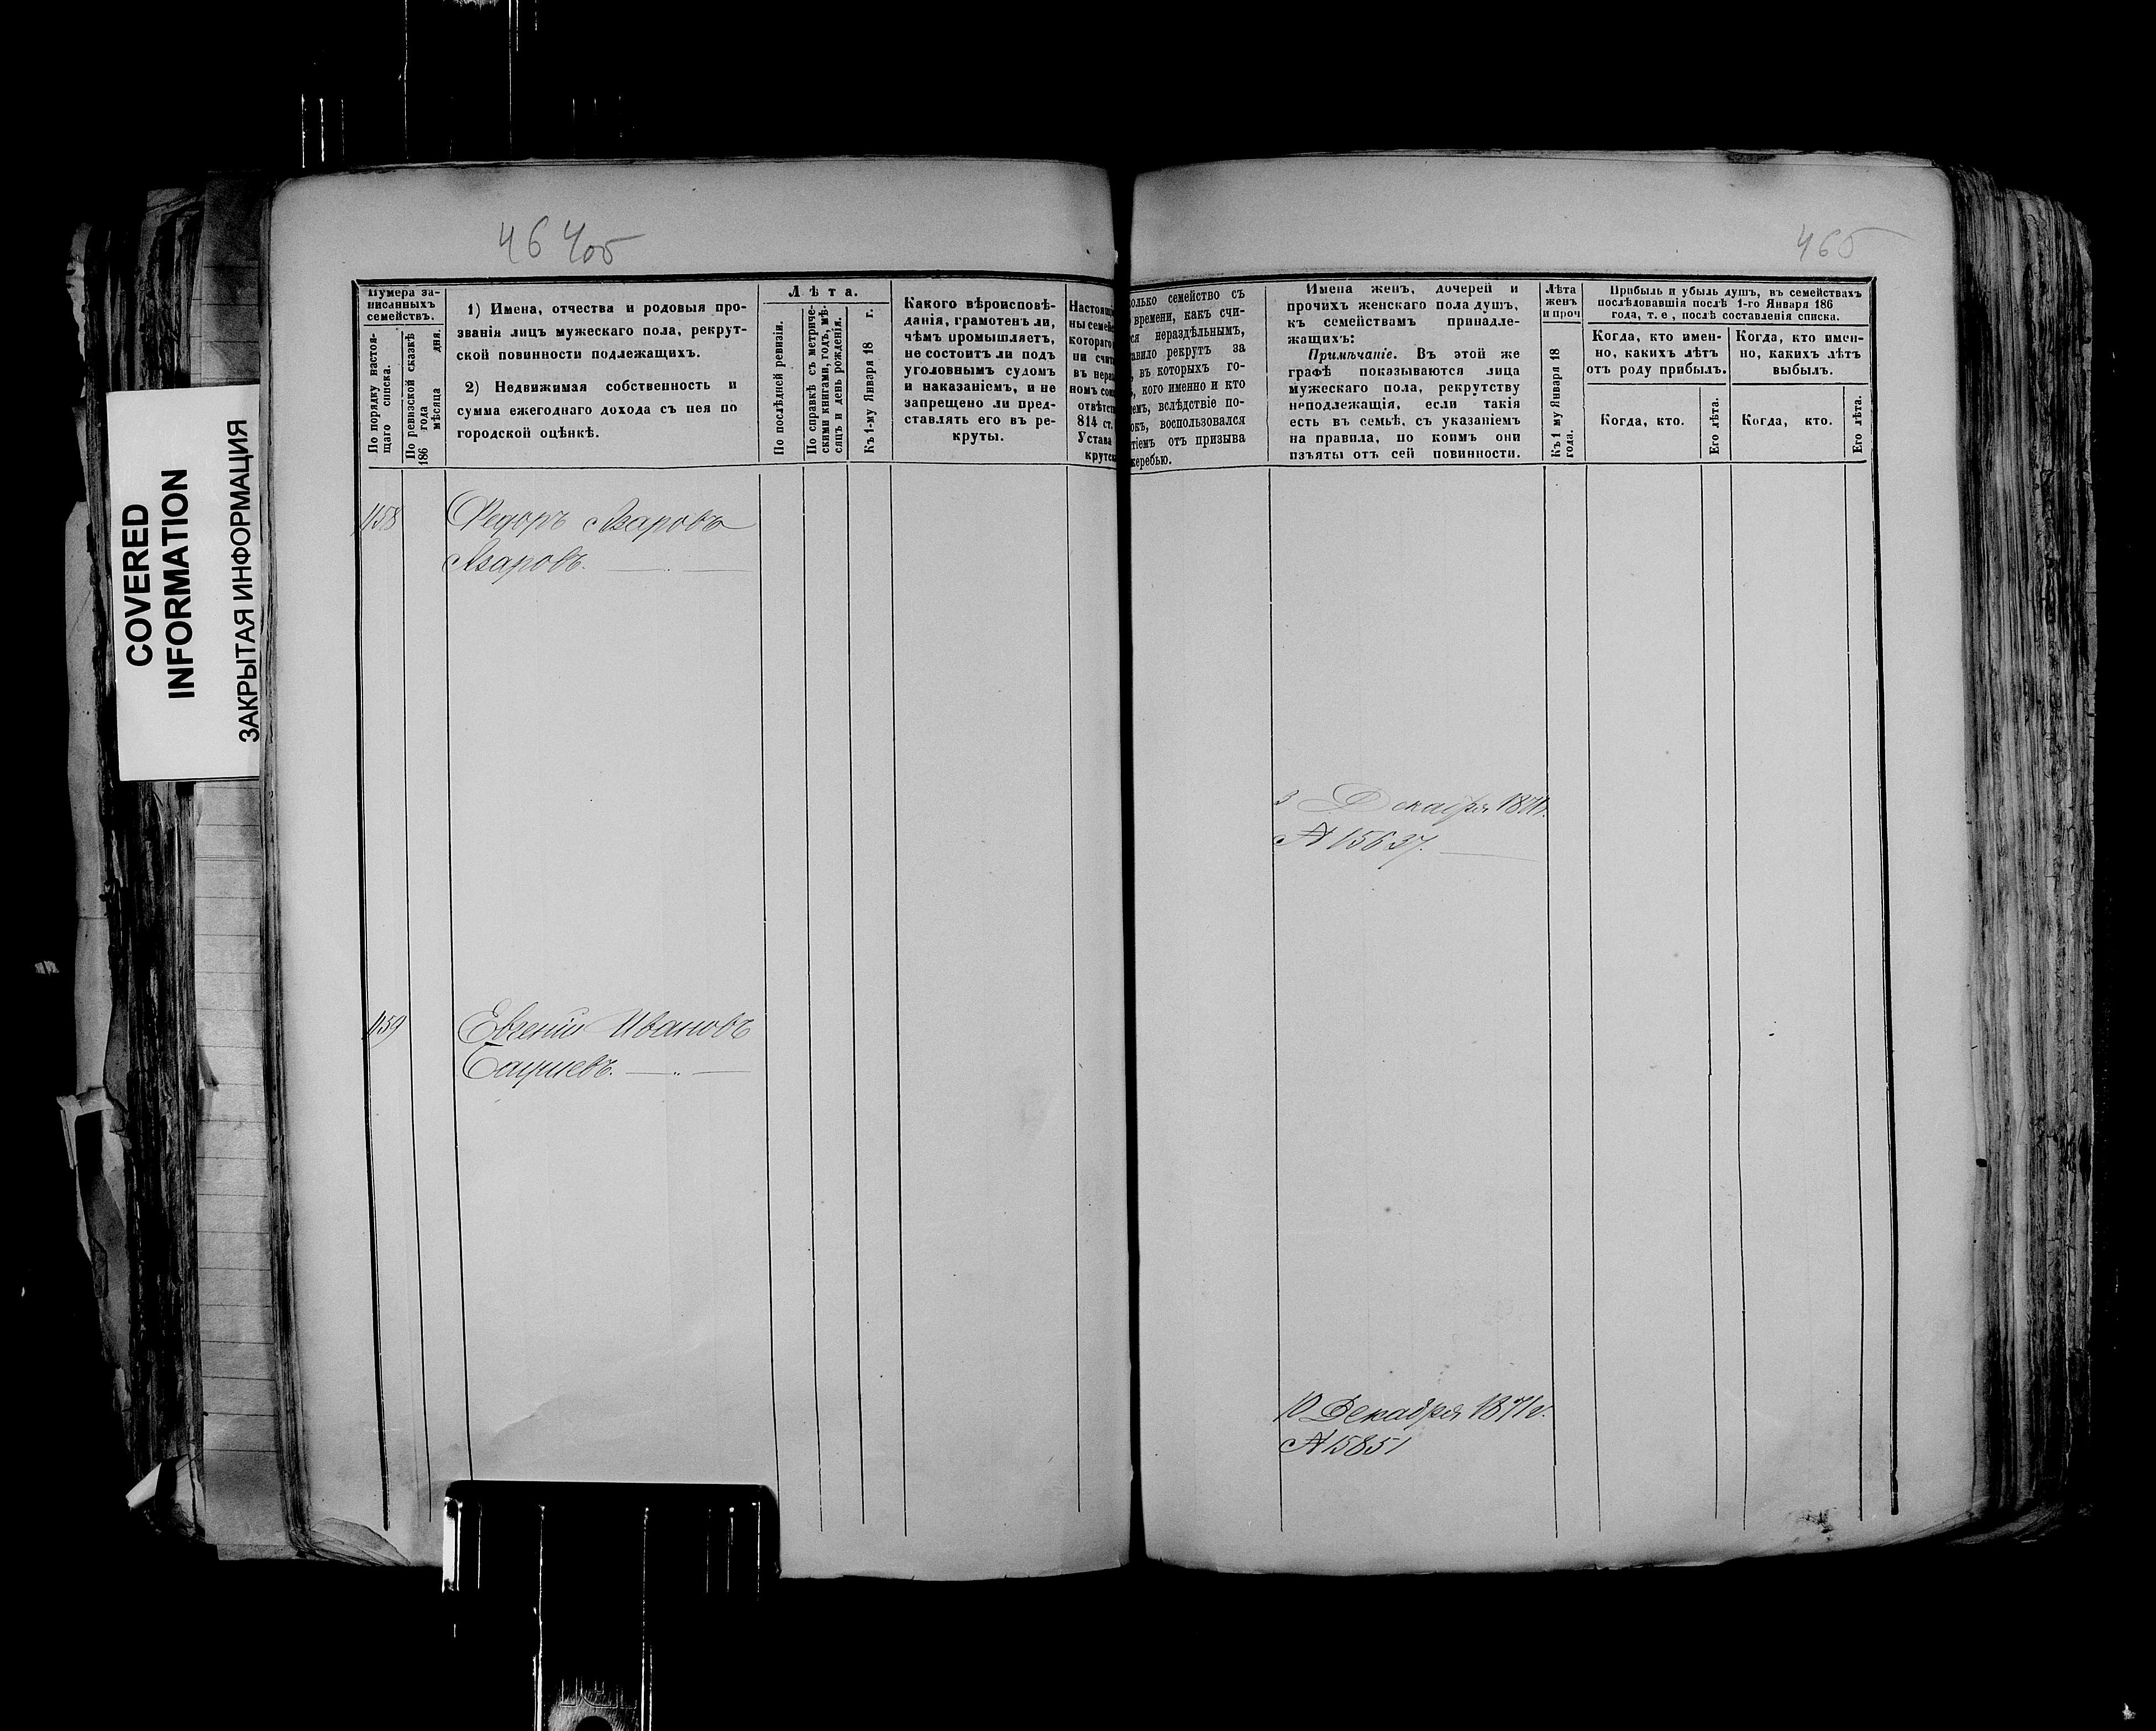 COVERED
INFORMATION
ЗАКРЫТАЯ ИНФОРМАЦИЯ
464об
465
Нумера за-
писанныхъ
семействъ.
По порядку настоя-
щаго списка.
По ревизской сказкѣ
186 года мѣсяца дня.
1) Имена, отчества и родовыя про-
званія лицъ мужескаго пола, рекрут-
ской повинности подлежащихъ.
2) Недвижимая собственность и
сумма ежегоднаго дохода съ нея по
городской оцѣнкѣ.
Лѣта.
По послѣдней ревизіи.
По справкѣ съ метриче-
скими книгами, годъ, мѣ-
сяцъ и день рожденія.
Къ 1-му Января 18 г.
Какого вѣроисповѣ-
данія, грамотенъ ли,
чѣмъ промышляетъ,
не состоитъ ли подъ
уголовнымъ судомъ
и наказаніемъ, и не
запрещено ли пред-
ставлять его въ ре-
круты.
Настоящ
ны семей
котораго
ни счит
въ нераз
номъ сос
отвѣтст
814 ст.
Устава
крутск
олько семейство съ
времени, какъ счи-
ся нераздѣльнымъ,
авило рекрутъ за
, въ которыхъ го-
, кого именно и кто
емъ, вслѣдствіе по-
окъ, воспользовался
тіемъ отъ призыва
жеребью.
Имена женъ, дочерей и
прочихъ женскаго пола душъ,
къ семействамъ принадле-
жащихъ:
Примѣчаніе. Въ этой же
графѣ показываются лица
мужескаго пола, рекрутству
неподлежащія, если такія
есть въ семьѣ, съ указаніемъ
на правила, по коимъ они
изъяты отъ сей повинности.
Лѣта
женъ
и проч
Къ 1 му Января 18
года.
Прибыль и убыль душъ, въ семействахъ
послѣдовавшія послѣ 1-го Января 186
года, т. е., послѣ составленія списка.
Когда, кто имен-
но, какихъ лѣтъ
отъ роду прибылъ.
Когда, кто имен-
но, какихъ лѣтъ
выбылъ.
Когда, кто.
Его лѣта.
Когда, кто.
Его лѣта.
1158
Федоръ Азаровъ
Азаровъ.
3 Декабря 1871г.
№ 15637.
1159
Евгеній Ивановъ
10 Декабря 1871г.
№ 15851